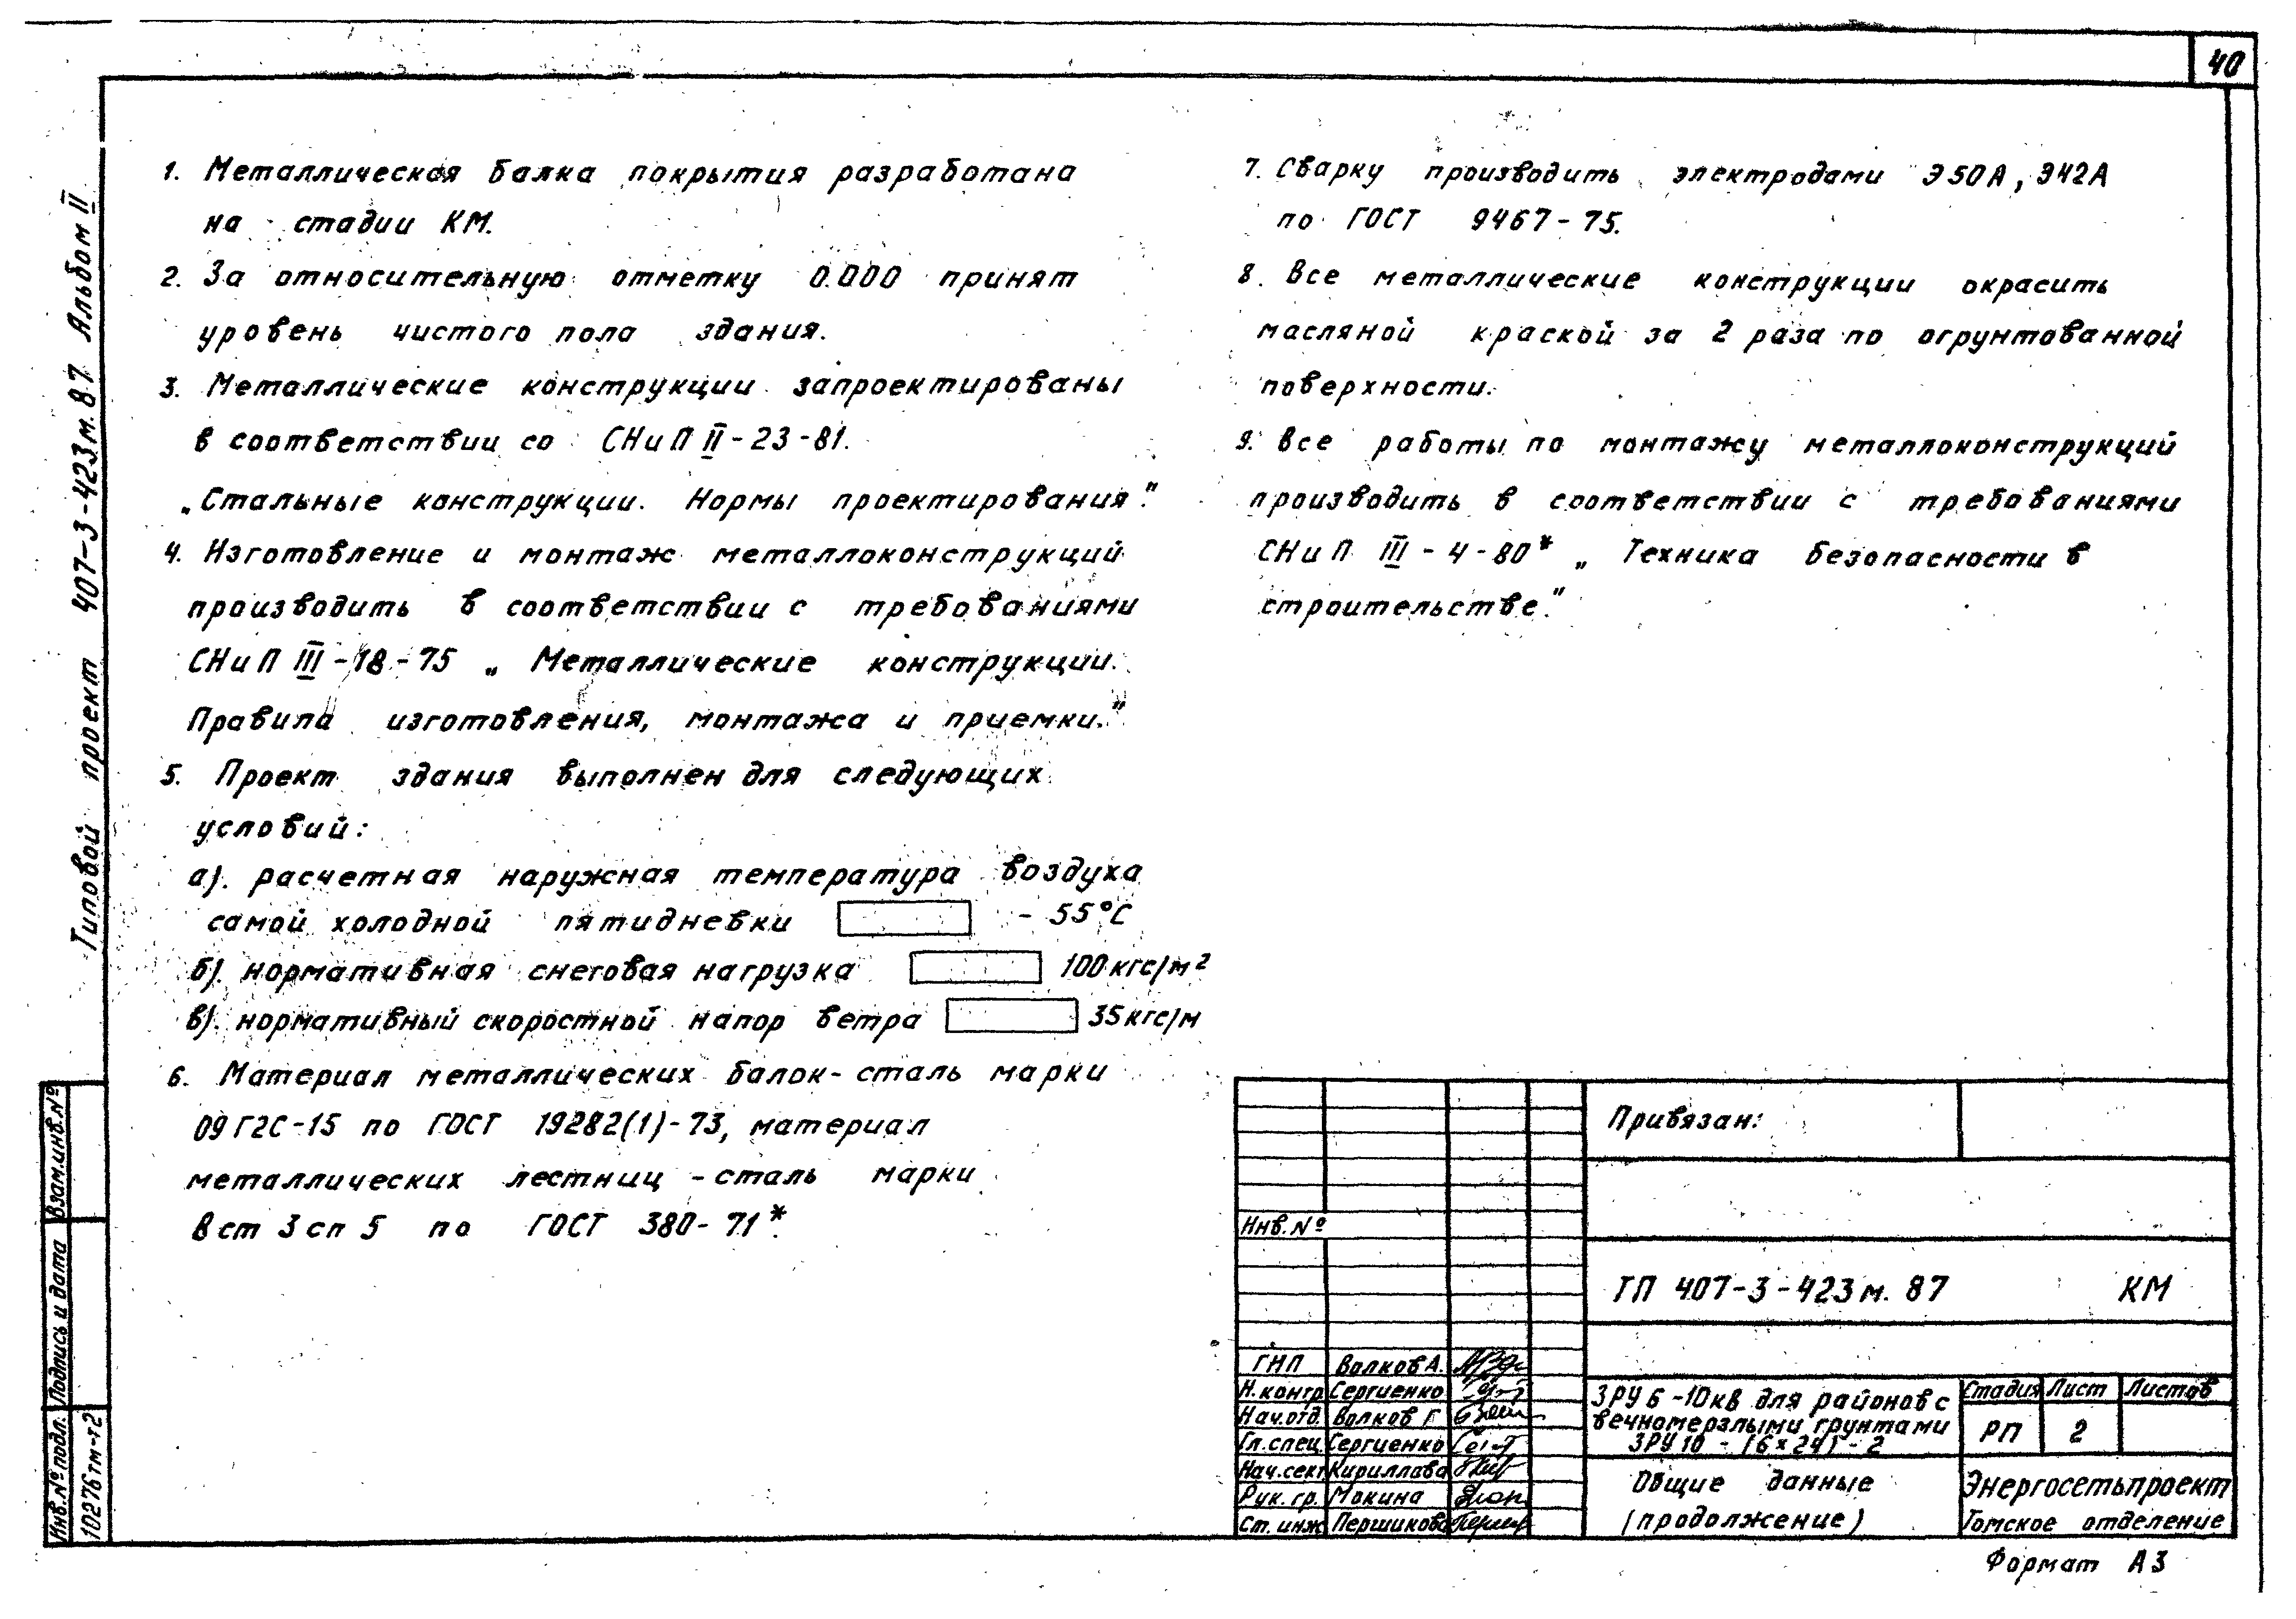 40
1. Металлическая балка покрытия разработана
на стадии КМ.
2. За относительную отметку 0.000 принят
уровень чистого пола здания.
3. Металлические конструкции запроектированы
в соответствии со СНиП II-23-81.
„Стальные конструкции. Нормы проектирования".
4. Изготовление и монтаж металлоконструкций
производить в соответствии с требованиями
СНиП III-18-75 „Металлические конструкции.
Правила изготовления, монтажа и приемки."
5. Проект здания выполнен для следующих
условий:
а). расчетная наружная температура воздуха
самой холодной пятидневки - 55°С
б). нормативная снеговая нагрузка 100 кгс/м²
в). нормативный скоростной напор ветра 35 кгс/м
6. Материал металлических балок - сталь марки
09Г2С-15 по ГОСТ 19282(1)-73, материал
металлических лестниц - сталь марки
Вст 3 сп 5 по ГОСТ 380-71*.
7. Сварку производить электродами Э50А, Э42А
по ГОСТ 9467-75.
8. Все металлические конструкции окрасить
масляной краской за 2 раза по огрунтованной
поверхности.
9. Все работы по монтажу металлоконструкций
производить в соответствии с требованиями
СНиП III-4-80* „Техника безопасности в
строительстве".
Типовой проект 407-3-423м.87 Альбом II
Взам.инв.№
Подпись и дата
Инв.№ подл.
10276тм-т2
Привязан:
Инв.№
ТП 407-3-423м.87 КМ
ГИП Волков А.
Н.контр Сергиенко
Нач.отд. Волков Г
Гл.спец Сергиенко
Нач.сект Кириллова
Рук.гр. Мокина
Ст.инж Першикова
ЗРУ 6-10кВ для районов с
вечномерзлыми грунтами
ЗРУ 10 - (6×24) - 2
Стадия Лист Листов
РП 2
Общие данные
(продолжение)
Энергосетьпроект
Томское отделение
Формат А3